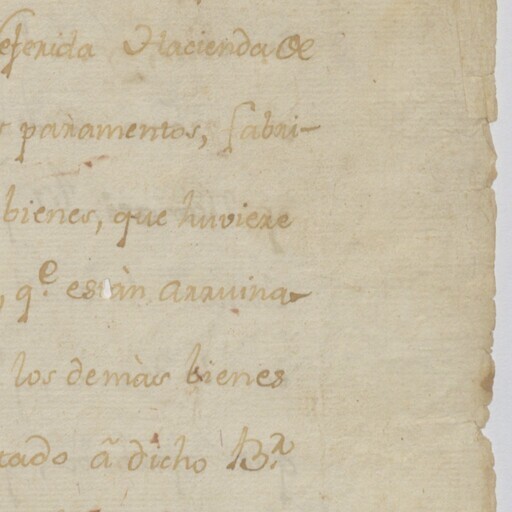 referida Hacienda de
paramentos, fabri-
bienes, que huviere
, q.e estàn arruina-
los demàs bienes
tado â dicho B.r